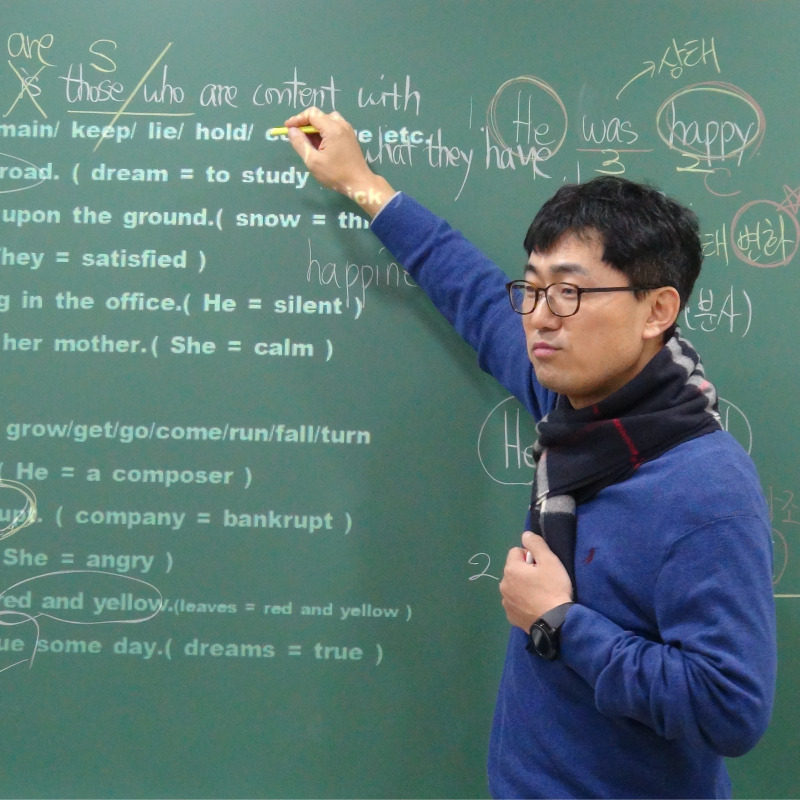 are S
is those who are content with
what they have
main/ keep/ lie/ hold/ etc.
road. ( dream = to study
upon the ground.( snow = thick
They = satisfied )
happine
g in the office.( He = silent )
her mother.( She = calm )
grow/get/go/come/run/fall/turn
( He = a composer )
upt. ( company = bankrupt )
She = angry )
red and yellow.(leaves = red and yellow )
ue some day.( dreams = true )
상태
He was happy
3 2
C
태 변화
(분사)
He
2